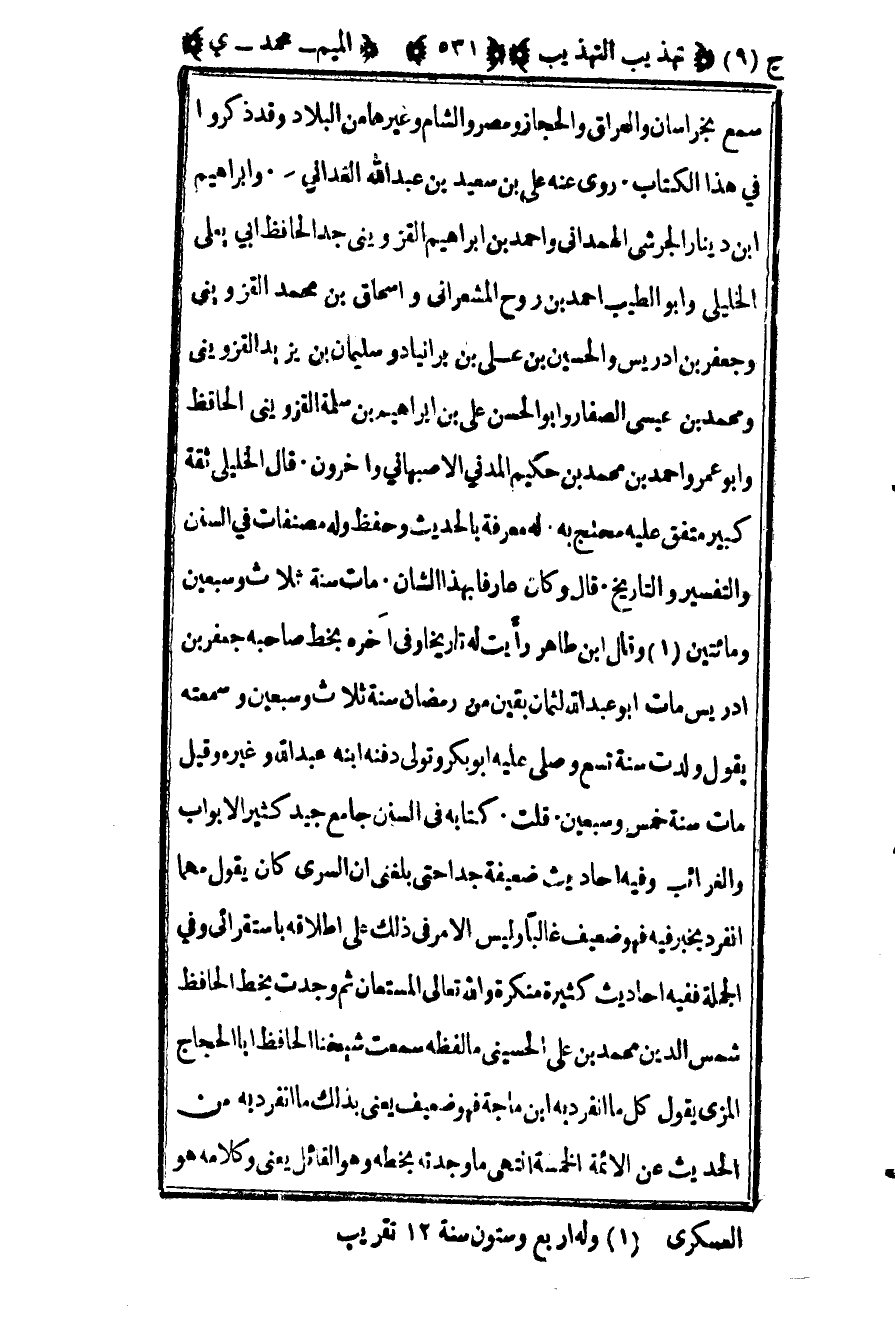 ج (٩) ﴿ تهذيب التهذيب ﴾﴿ ٥٣١ ﴾ ﴿ الميم ـ محمد ـ ي ﴾
سمع بخراسان والعراق والحجاز ومصر والشام وغيرها من البلاد وقد ذكروا
في هذا الكتاب ٠ روى عنه علي بن سعيد بن عبد الله الغداني ـ ٠ وابراهيم
ابن دينار الجرشي الهمداني واحمد بن ابراهيم القزويني جد الحافظ ابي يعلى
الخليلي وابو الطيب احمد بن روح المشعراني و اسحاق بن محمد القزويني
وجعفر بن ادريس والحسين بن عـلي بن برانياد و سليمان بن يزيد القزويني
ومحمد بن عيسى الصفار وابو الحسن علي بن ابراهيم بن سلمة القزويني الحافظ
وابو عمرو احمد بن محمد بن حكيم المدني الاصبهاني واخرون ٠ قال الخليلي ثقة
كبير متفق عليه محتج به ٠ له معرفة بالحديث وحفظ وله مصنفات في السنن
والتفسير و التاريخ ٠ قال وكان عارفا بهذا الشان ٠ مات سنة ثلاث وسبعين
ومائتين (١) وقال ابن طاهر رأيت له تاريخا وفى آخره بخط صاحبه جعفر بن
ادريس مات ابو عبد الله لثمان بقين من رمضان سنة ثلاث وسبعين و سمعته
يقول ولدت سنة تسع وصلى عليه ابو بكر وتولى دفنه ابنه عبد الله و غيره وقيل
مات سنة خمس وسبعين ٠ قلت ٠ كتابه فى السنن جامع جيد كثير الابواب
والغرائب وفيه احاديث ضعيفة جدا حتى بلغنى ان السرى كان يقول مهما
انفرد بخبر فيه فهو ضعيف غالباً وليس الامر فى ذلك على اطلاقه باستقرائى وفي
الجملة ففيه احاديث كثيرة منكرة والله تعالى المستعان ثم وجدت بخط الحافظ
شمس الدين محمد بن على الحسيني ما لفظه سمعت شيخنا الحافظ ابا الحجاج
المزى يقول كل ما انفرد به ابن ماجة فهو ضعيف يعنى بذلك ما انفرد به من
الحديث عن الائمة الخمسة انتهى ما وجدته بخطه وهو القائل يعنى و كلامه هو
العسكرى (١) وله اربع وستون سنة ١٢ تقريب